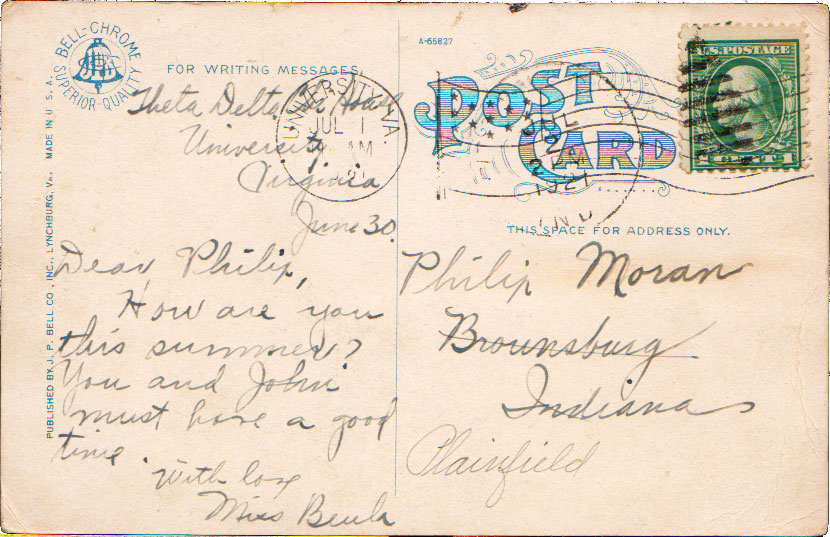 BELL-CHROME
SUPERIOR-QUALITY
FOR WRITING MESSAGES
Theta Delta House
University
Virginia
June 30.
Dear Philip,
How are you
this summer?
You and John
must have a good
time.
With love
Miss Beula
PUBLISHED BY J. P. BELL CO., INC., LYNCHBURG, VA. MADE IN U. S. A.
UNIVERSITY, VA
JUL 1
AM
A-65827
POST
CARD
JUL
2
AM
1921
IND
U.S. POSTAGE
1
THIS SPACE FOR ADDRESS ONLY.
Philip Moran
Brownsburg
Indiana
Plainfield